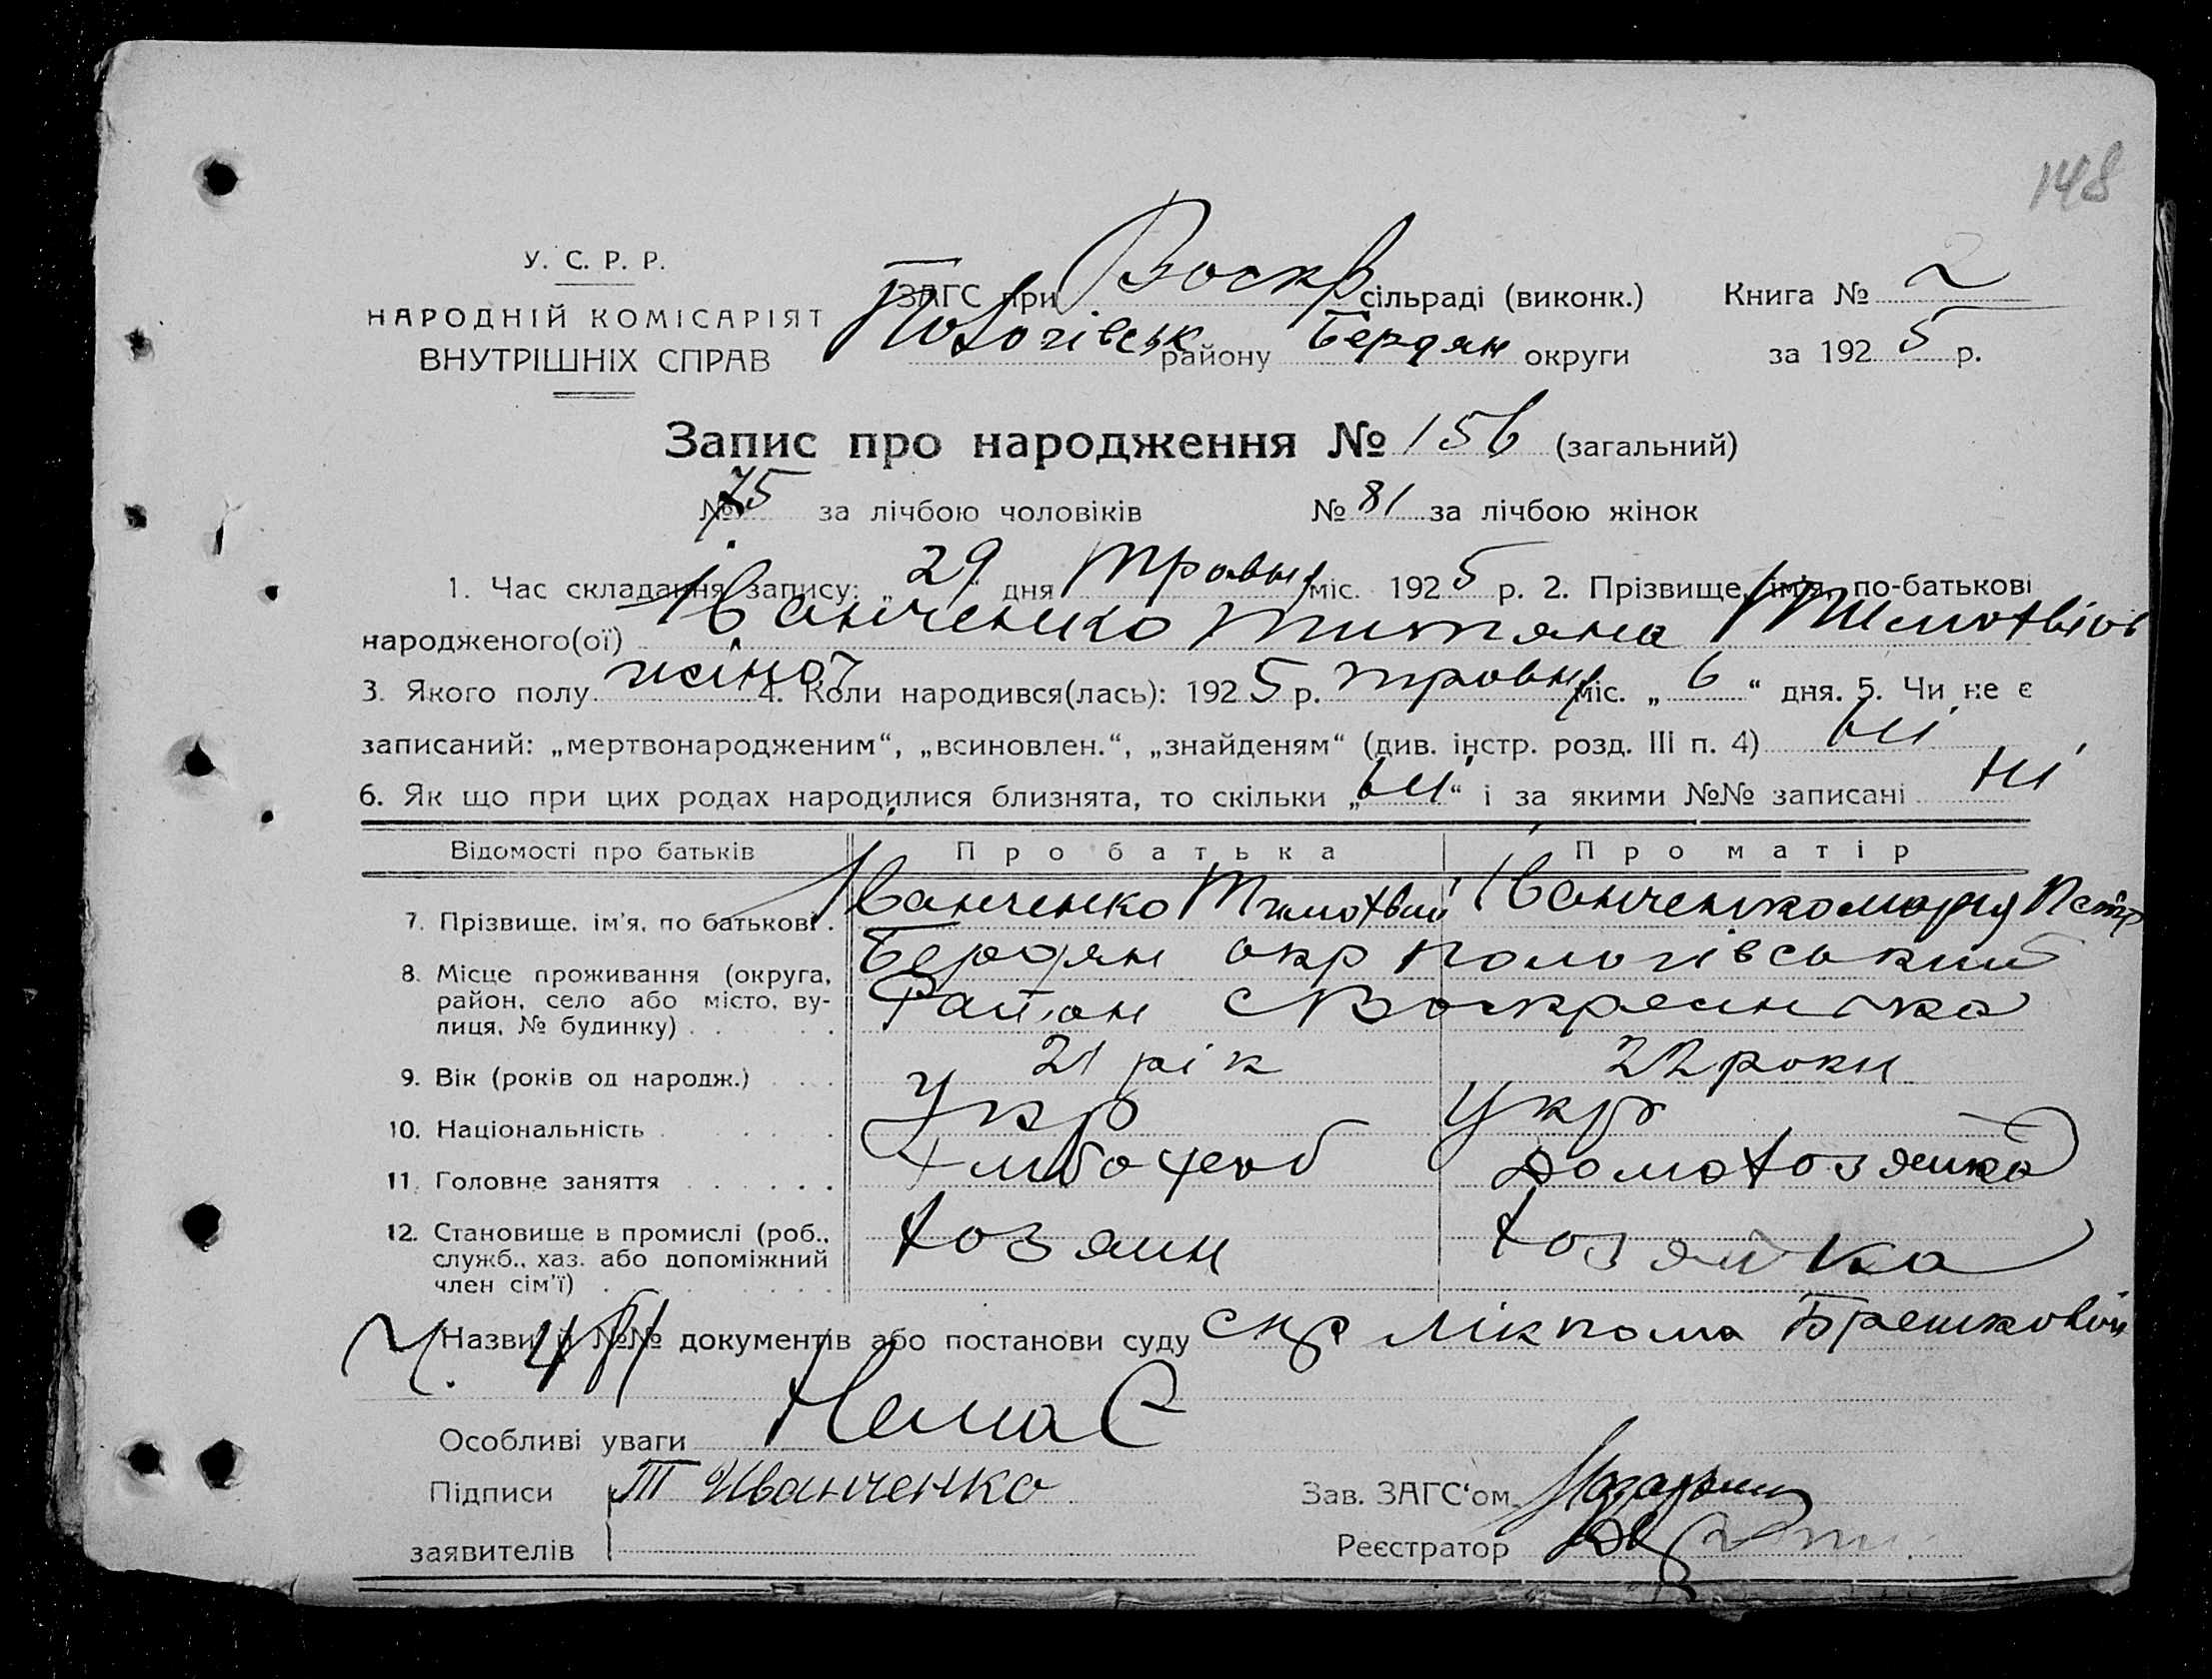 148
У. С. Р. Р.
НАРОДНІЙ КОМІСАРІЯТ
ВНУТРІШНІХ СПРАВ
ЗАГС при Воскр сільраді (виконк.) Книга № 2
Пологівськ району Бердян округи за 1925 р.
Запис про народження № 156 (загальний)
№ 75 за лічбою чоловіків № 81 за лічбою жінок
1. Час складання запису: „29“ дня травня міс. 1925 р. 2. Прізвище, ім'я, по-батькові
народженого(ої) Іванченко Титяна Тимохвіов
3. Якого полу жіноч 4. Коли народився(лась): 1925 р. травня міс. „6“ дня. 5. Чи не є
записаний: „мертвонародженим“, „всиновлен.“, „знайденям“ (див. інстр. розд. III п. 4) ні
6. Як що при цих родах народилися близнята, то скільки „ні“ і за якими №№ записані ні
Відомості про батьків Про батька Про матір
7. Прізвище, ім'я, по батькові . Іванченко Тимохвий Іванченко мария Петр
8. Місце проживання (округа, район, село або місто, вулиця, № будинку) . . . . Бердян окр Пологівський
Район с Воскресинька
9. Вік (років од народж.) . . . 21 рік 22 роки
10. Національність . . . . . . Укр Укр
11. Головне заняття . . . . . . Хлібороб Домохозяйка
12. Становище в промислі (роб., служб., хаз. або допоміжний член сім'ї) . . . . . . Хозяин хозяйка
Назви й №№ документів або постанови суду лікпома Брешковій
Ч. 481
Особливі уваги Нема
Підписи Т Иванченко Зав. ЗАГС'ом
заявителів Реєстратор